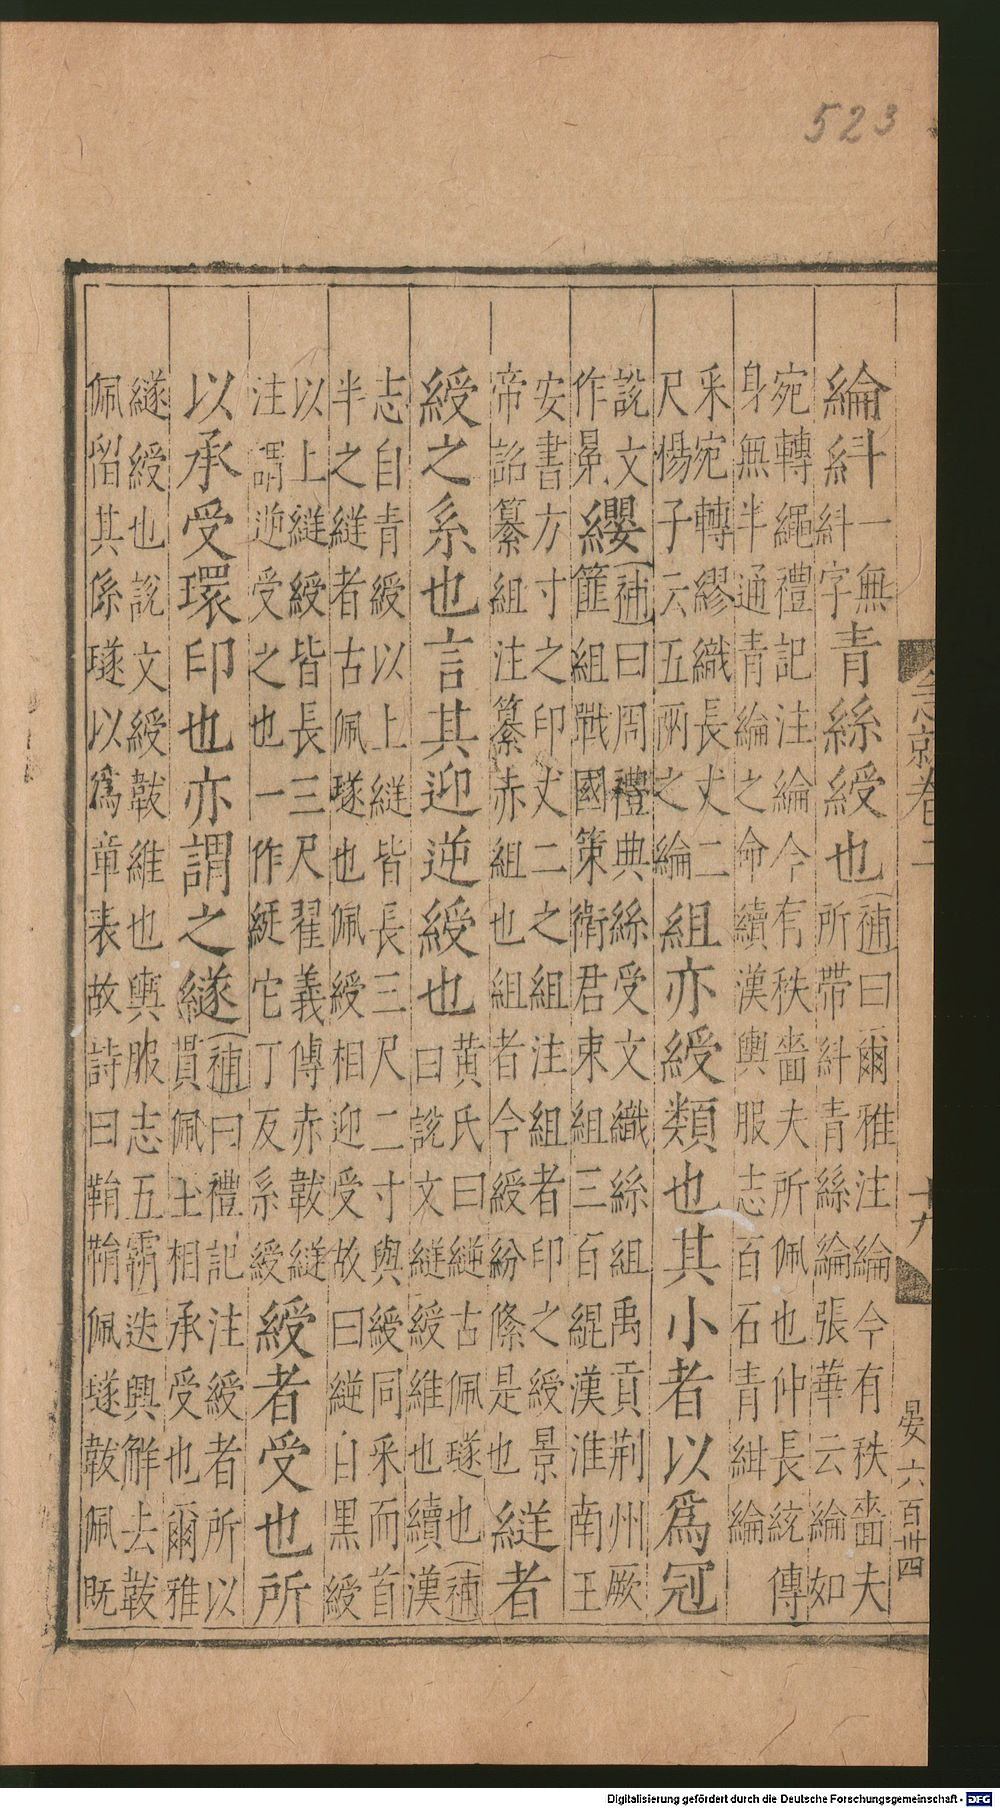 523
急就卷二
十九
晏六百卅四
綸糾一無糾字青絲綬也(補)曰爾雅注綸今有秩嗇夫所帶糾青絲綸張華云綸如
宛轉繩禮記注綸今有秩嗇夫所佩也仲長統傳身無半通青綸之命續漢輿服志百石青紺綸
采宛轉繆織長丈二尺揚子云五兩之綸組亦綬類也其小者以爲冠
說文作冕纓(補)曰周禮典絲受文織絲組禹貢荊州厥篚組戰國策衛君束組三百緄漢淮南王
安書方寸之印丈二之組注組者印之綬景帝詔纂組注纂赤組也組者今綬紛絛是也縌者
綬之系也言其迎逆綬也黄氏曰縌古佩璲也(補)曰說文縌綬維也續漢
志自青綬以上縌皆長三尺二寸與綬同采而首半之縌者古佩璲也佩綬相迎受故曰縌自黑綬
以上縌綬皆長三尺翟義傳赤韍縌注謂逆受之也一作綎它丁反系綬綬者受也所
以承受環印也亦謂之繸(補)曰禮記注綬者所以貫佩玉相承受也爾雅
繸綬也說文綬韍維也輿服志五霸迭興解去韍佩留其係璲以爲章表故詩曰鞙鞙佩璲韍佩既
Digitalisierung gefördert durch die Deutsche Forschungsgemeinschaft - DFG